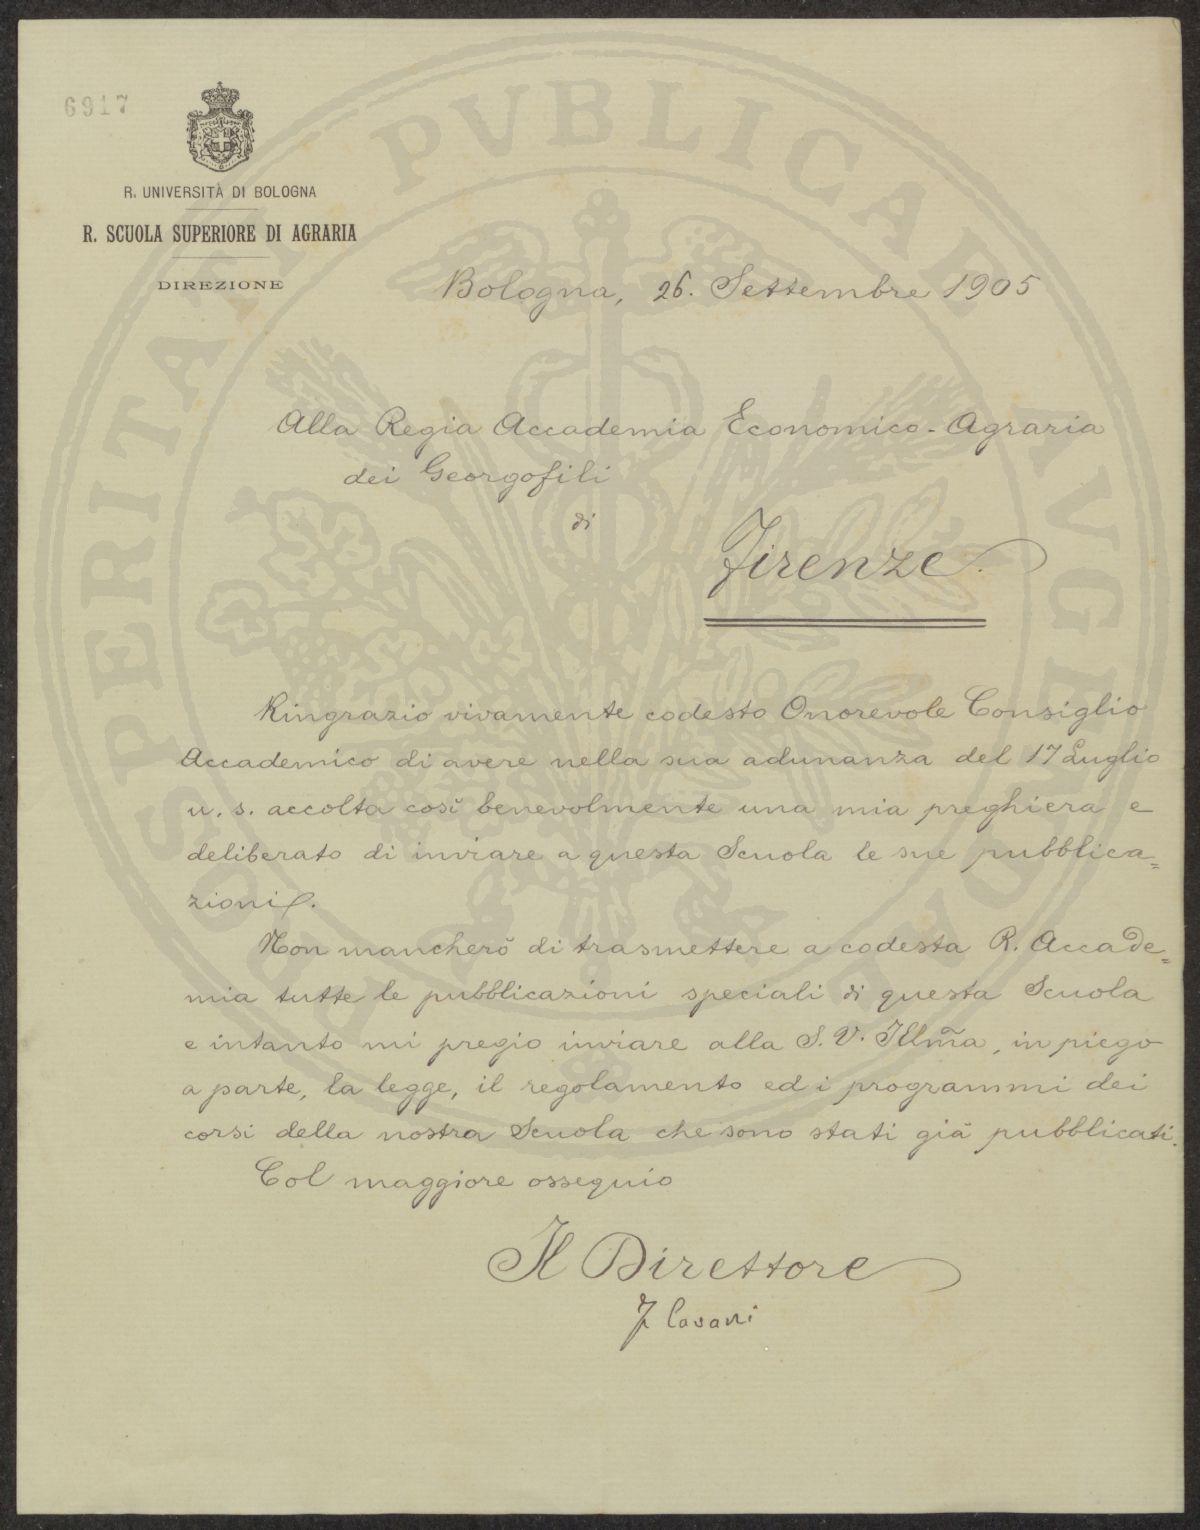 6917
R. UNIVERSITÀ DI BOLOGNA
R. SCUOLA SUPERIORE DI AGRARIA
DIREZIONE
Bologna, 26. Settembre 1905
Alla Regia Accademia Economico-Agraria
dei Georgofili
di
Firenze.
Ringrazio vivamente codesto Onorevole Consiglio
Accademico di avere nella sua adunanza del 17 Luglio
u. s. accolta così benevolmente una mia preghiera e
deliberato di inviare a questa Scuola le sue pubblica=
zioni.
Non mancherò di trasmettere a codesta R. Accade=
mia tutte le pubblicazioni speciali di questa Scuola
e intanto mi pregio inviare alla S. V. Illm̃a, in piego
a parte, la legge, il regolamento ed i programmi dei
corsi della nostra Scuola che sono stati già pubblicati.
Col maggiore ossequio
Il Direttore
F. Cavani
PROSPERITATI PVBLICAE AVGENDAE